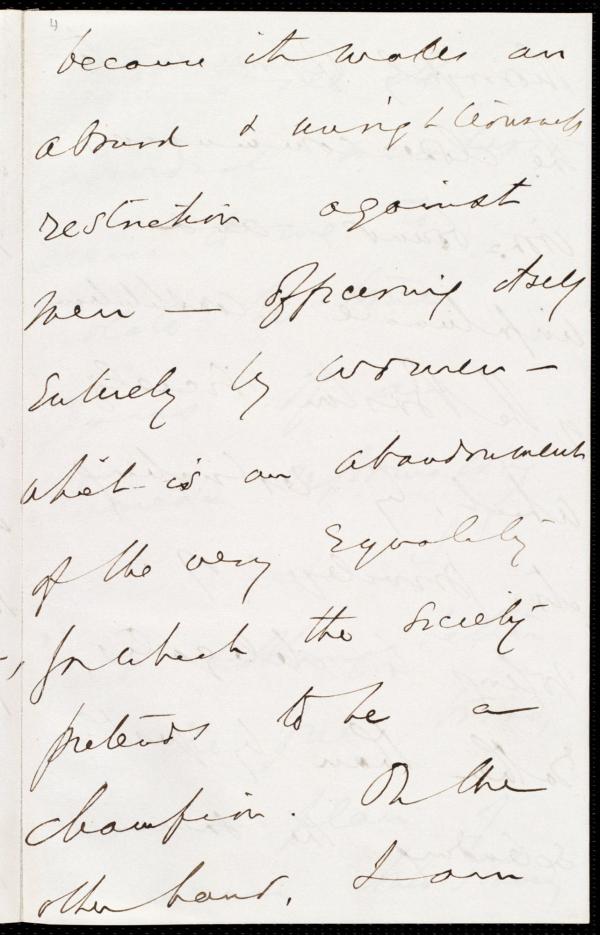 4
because it makes an
absurd & unrighteous
restriction against
men — officering itself
entirely by women —
which is an abandonment
of the very equality
for which the society
pretends to be a
champion. On the
other hand, I am